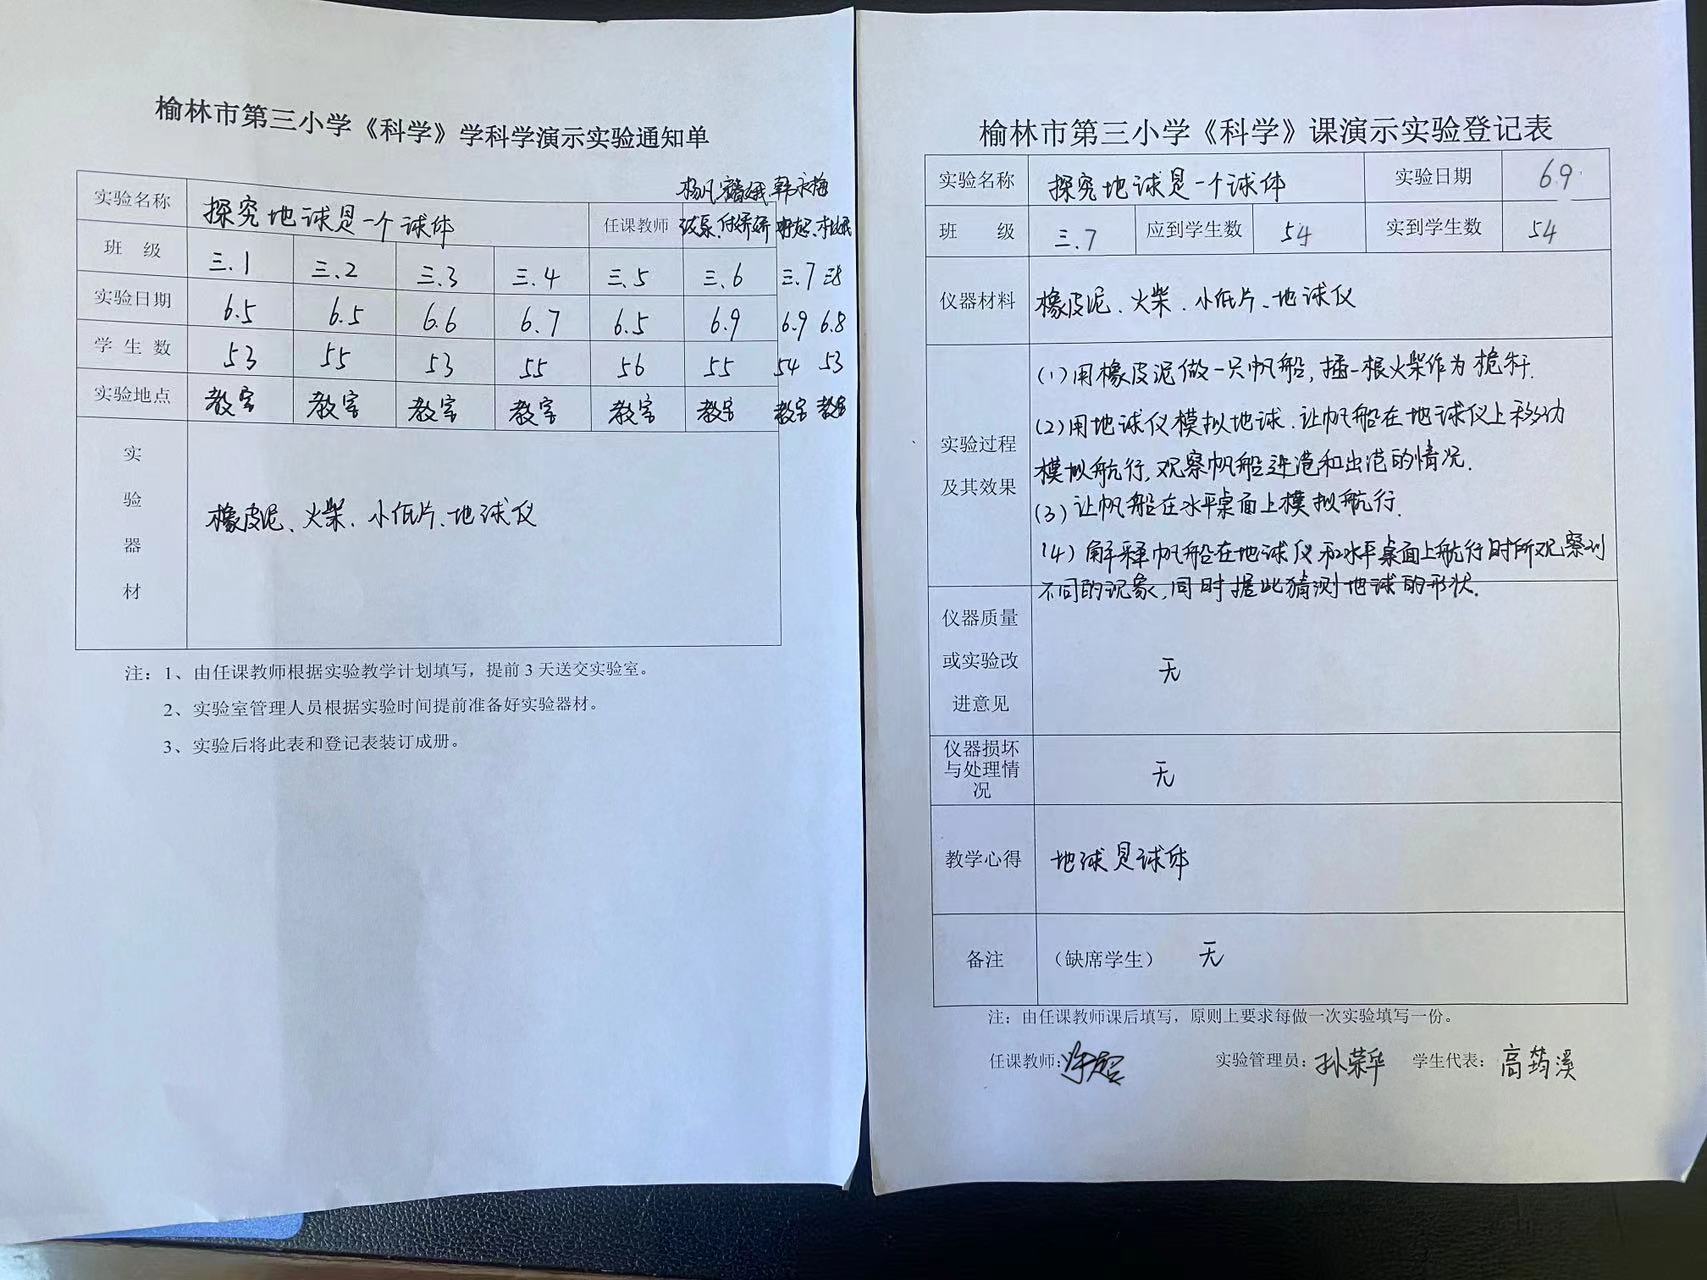 榆林市第三小学《科学》学科学演示实验通知单
实验名称 探究地球是一个球体 任课教师 杨帆 韩永梅
班 级 三.1 三.2 三.3 三.4 三.5 三.6 三.7 三.8
实验日期 6.5 6.5 6.6 6.7 6.5 6.9 6.9 6.8
学 生 数 53 55 53 55 56 55 54 53
实验地点 教室 教室 教室 教室 教室 教室 教室 教室
实验器材 橡皮泥、火柴、小纸片、地球仪
注：1、由任课教师根据实验教学计划填写，提前 3 天送交实验室。
2、实验室管理人员根据实验时间提前准备好实验器材。
3、实验后将此表和登记表装订成册。
榆林市第三小学《科学》课演示实验登记表
实验名称 探究地球是一个球体 实验日期 6.9
班 级 三.7 应到学生数 54 实到学生数 54
仪器材料 橡皮泥、火柴、小纸片、地球仪
实验过程及其效果
(1)用橡皮泥做一只帆船,插一根火柴作为桅杆.
(2)用地球仪模拟地球.让帆船在地球仪上移动
模拟航行,观察帆船进港和出港的情况.
(3)让帆船在水平桌面上模拟航行.
(4)解释帆船在地球仪和水平桌面上航行时所观察到
不同的现象,同时据此猜测地球的形状.
仪器质量或实验改进意见 无
仪器损坏与处理情况 无
教学心得 地球是球体
备注 （缺席学生） 无
注：由任课教师课后填写，原则上要求每做一次实验填写一份。
任课教师: 实验管理员: 孙荣华 学生代表: 高筠溪